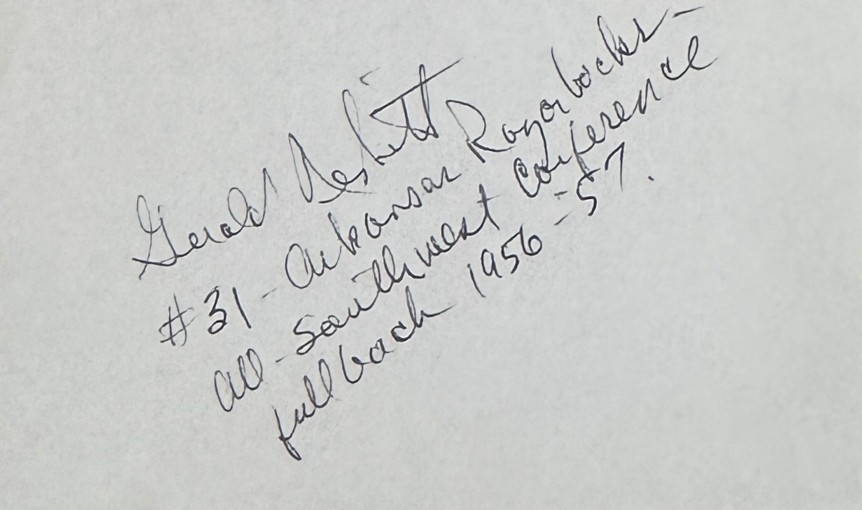 Gerald Nesbitt
#31 - Arkansas Razorbacks -
all - Southwest Conference
fullback 1956 - 57.